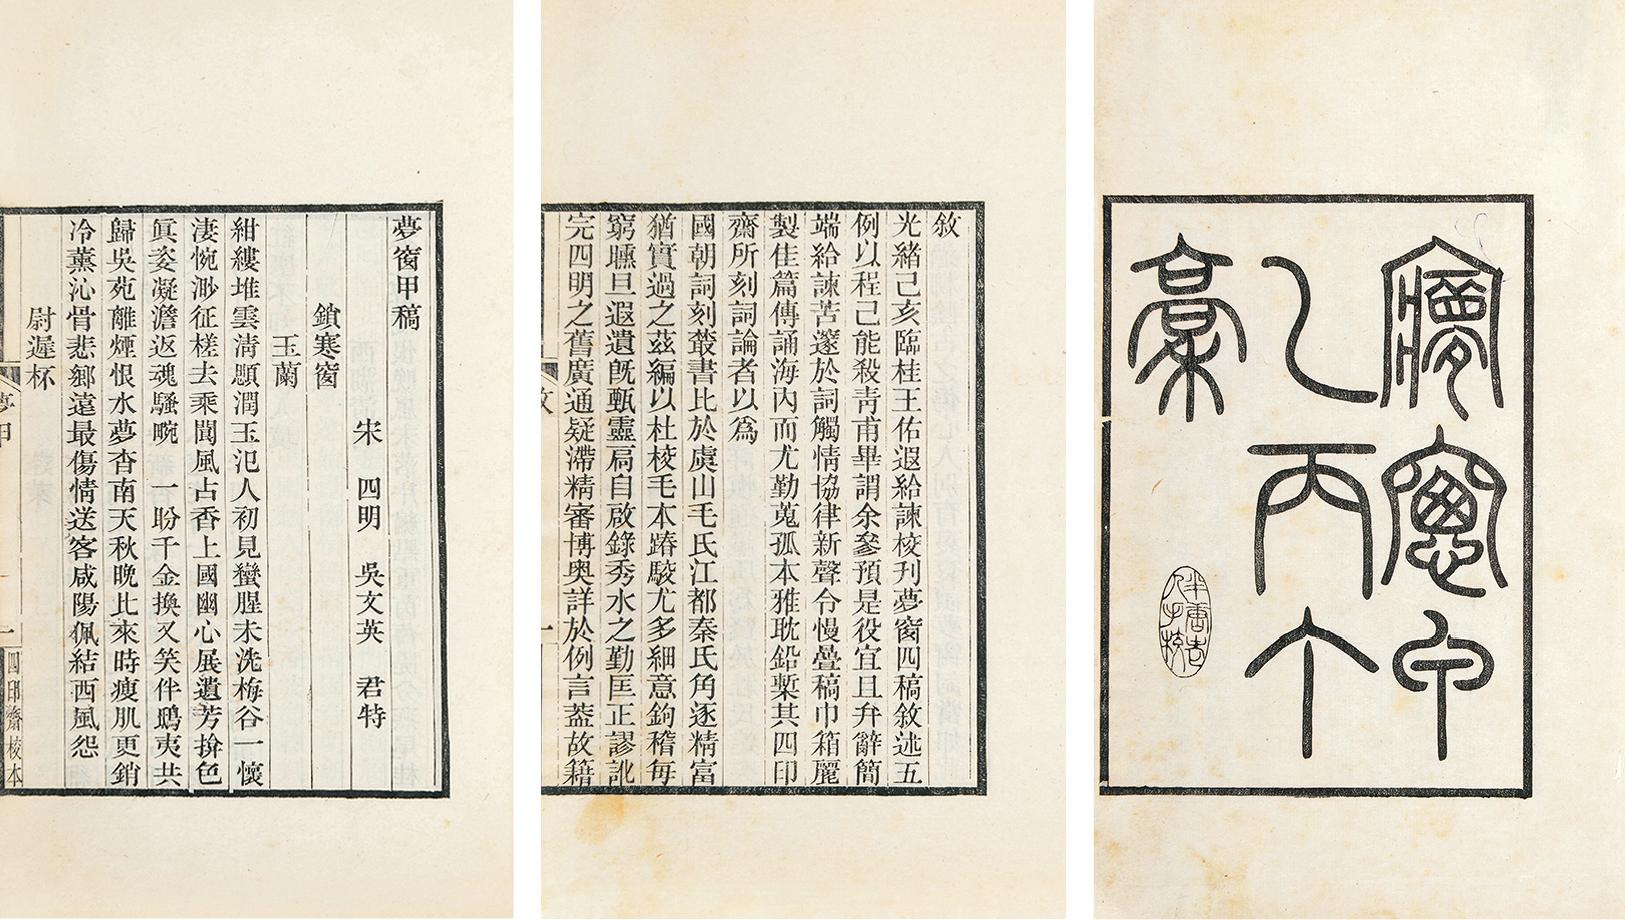 夢窗甲
乙丙丁
稾
半唐老
人手挍
敘
光緒己亥臨桂王佑遐給諫校刊夢窗四稿敘述五
例以程己能殺靑甫畢謂余參預是役宜且弁辭簡
端給諫苦邃於詞觸情協律新聲令慢疊稿巾箱麗
製佳篇傳誦海內而尤勤蒐孤本雅耽鉛槧其四印
齋所刻詞論者以爲
國朝詞刻叢書比於虞山毛氏江都秦氏角逐精富
猶實過之茲編以杜校毛本踳駮尤多細意鉤稽每
窮曛旦遐遺旣甄靈扃自啟錄秀水之勤匡正謬訛
完四明之舊廣通疑滯精審博奧詳於例言葢故籍
敘
一
夢窗甲稿
宋 四明 吳文英 君特
鎖寒窗
玉蘭
紺縷堆雲淸顋潤玉氾人初見蠻腥未洗梅谷一懷
淒惋渺征槎去乘閬風占香上國幽心展遺芳揜色
眞姿凝澹返魂騷畹 一盼千金換又笑伴鴟夷共
歸吳苑離煙恨水夢杳南天秋晚比來時瘦肌更銷
冷薰沁骨悲鄉遠最傷情送客咸陽佩結西風怨
尉遲杯
夢甲
一
四印齋校本